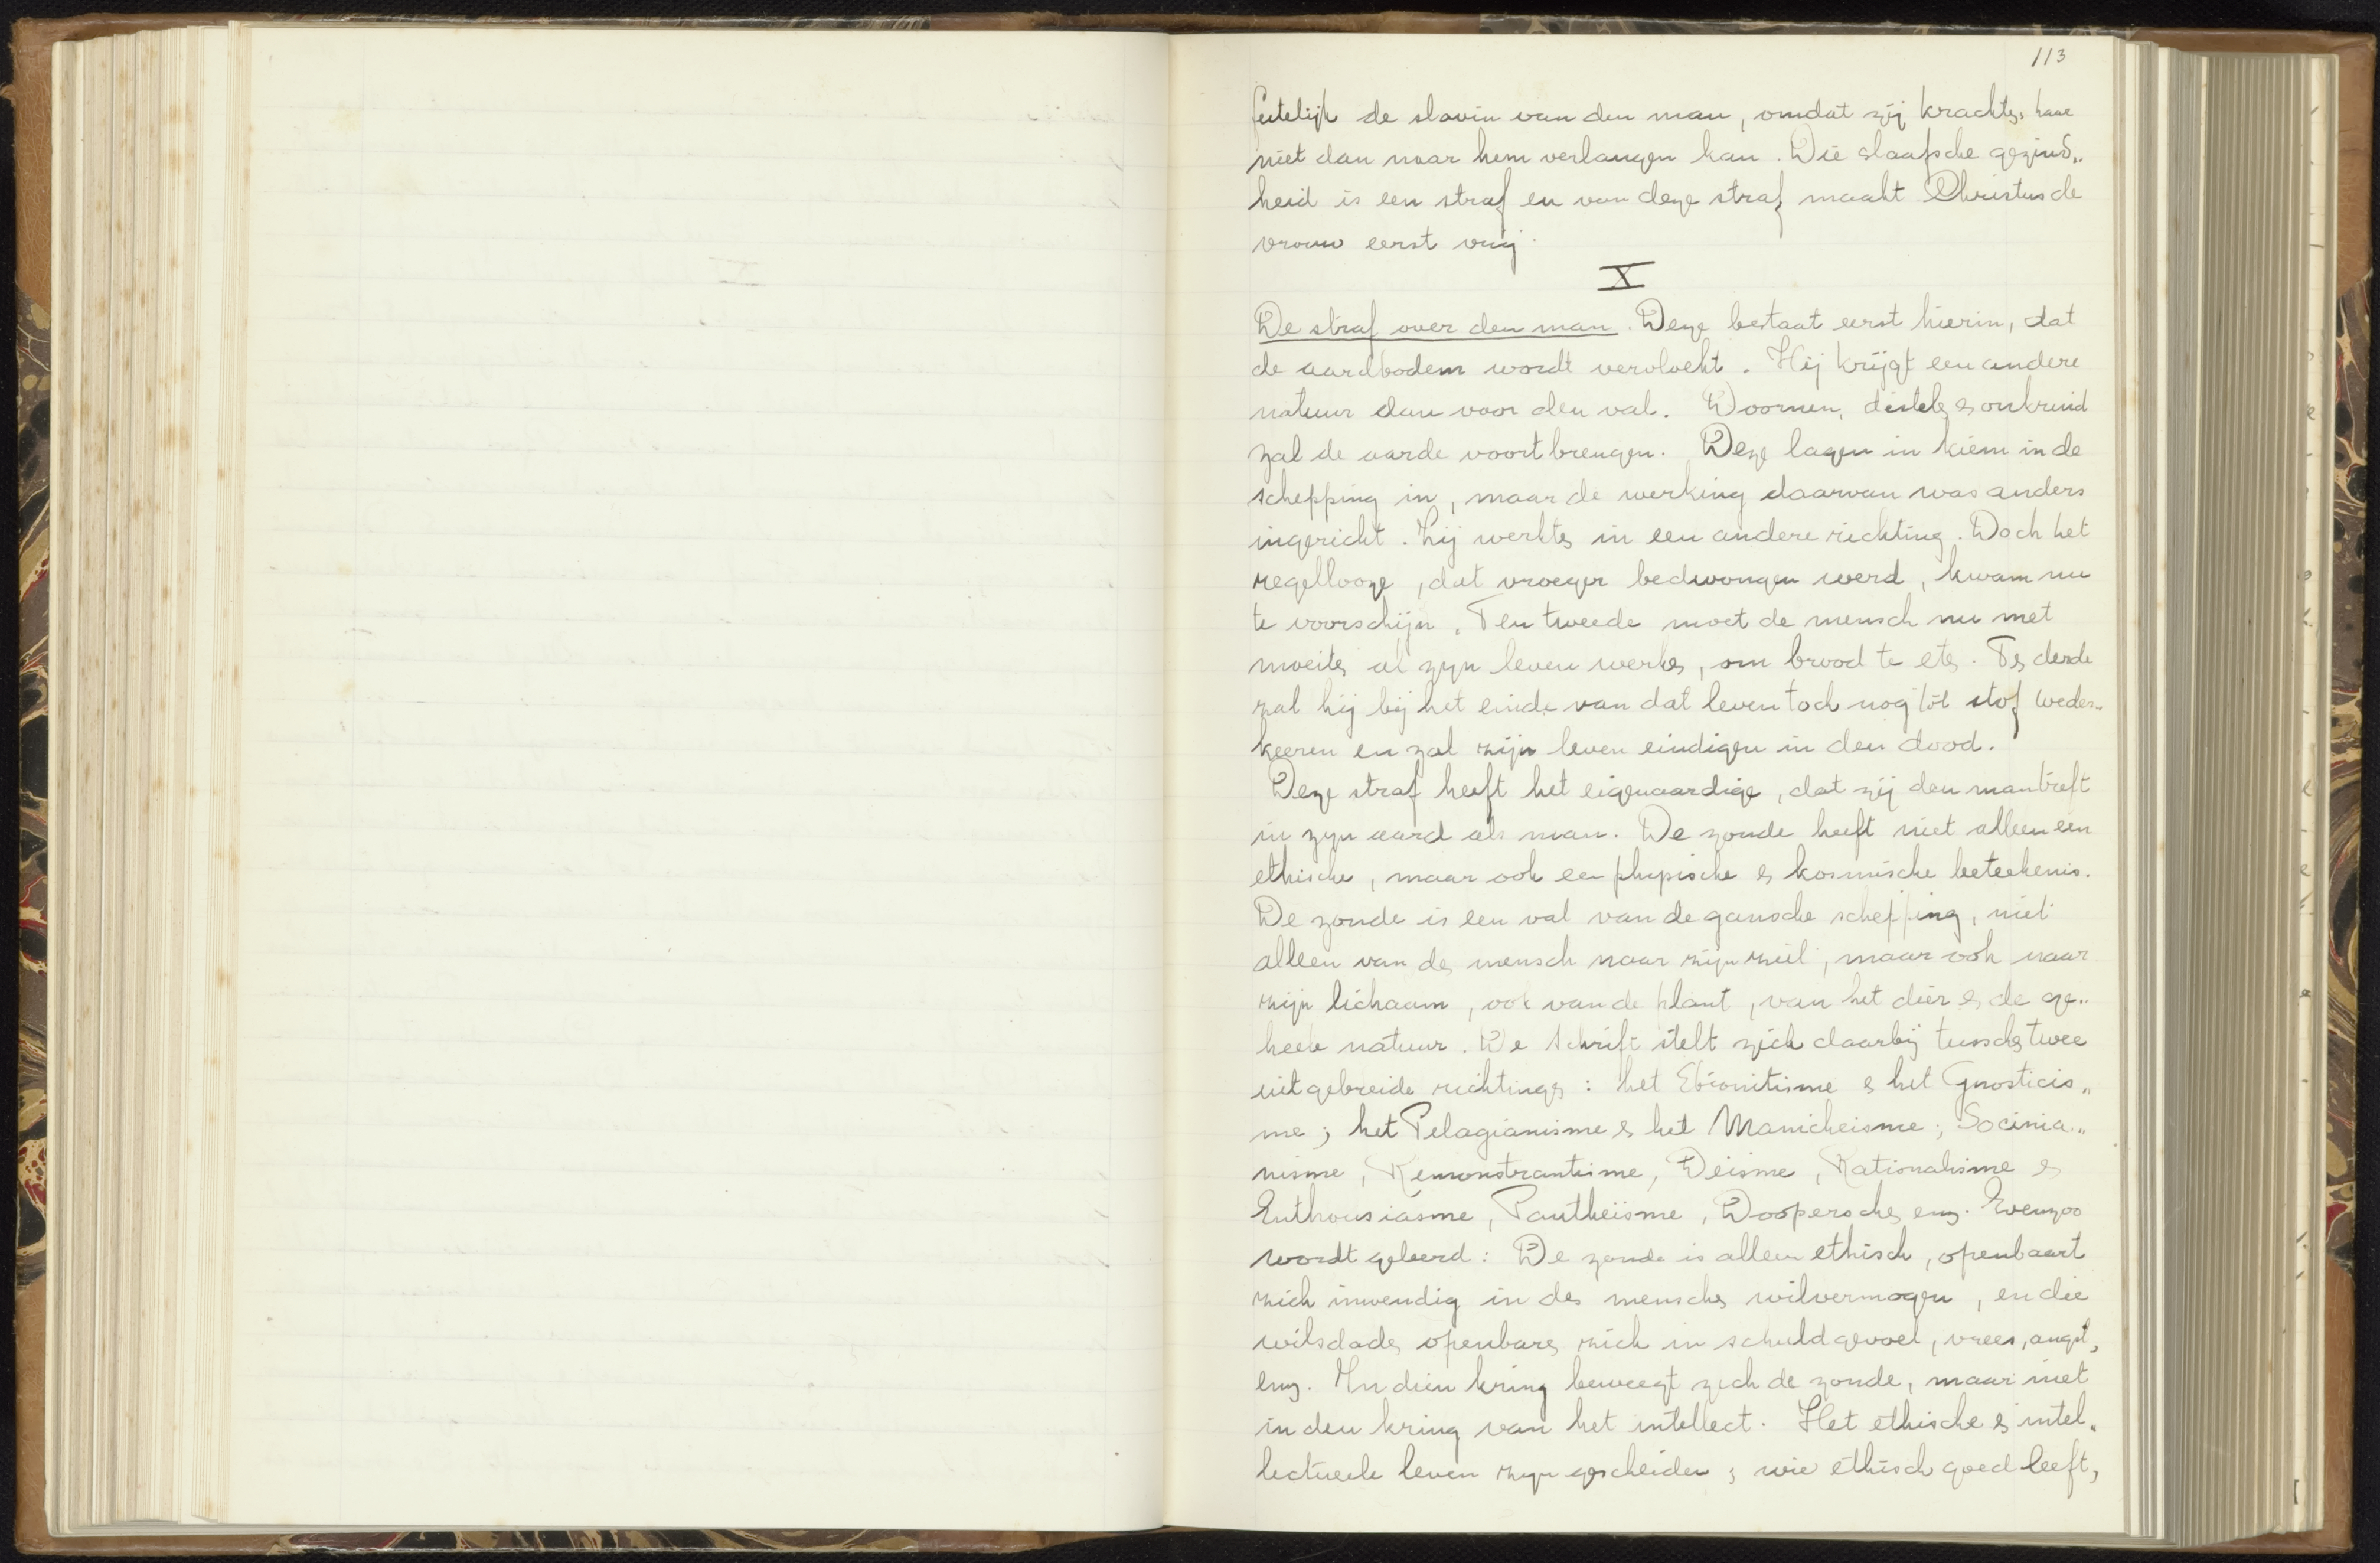 113
feitelijk de slavin van den man, omdat zij krachtens haar
niet dan naar hem verlangen kan. Die slaafsche gezind„
heid is een straf en van deze straf maakt Christus de
vrouw eerst vrij.
X
De straf over den man. Deze bestaat eerst hierin, dat
de aardbodem wordt vervloekt. Hij krijgt een andere
natuur dan voor den val. Doornen, distels en onkruid
zal de aarde voortbrengen. Deze lagen in kiem in de
schepping in, maar de werking daarvan was anders
ingericht. Zij werkten in een andere richting. Doch het
regellooze, dat vroeger bedwongen werd, kwam nu
te voorschijn. Ten tweede moet de mensch nu met
moeite al zijn leven werken, om brood te eten. Ten derde
zal hij bij het einde van dat leven toch nog tot stof weder„
keeren en zal zijn leven eindigen in den dood.
Deze straf heeft het eigenaardige, dat zij den man treft
in zijn aard als man. De zonde heeft niet alleen een
ethische, maar ook een physische en kosmische beteekenis.
De zonde is een val van de gansche schepping, niet
alleen van den mensch naar zijn ziel, maar ook naar
zijn lichaam, ook van de plant, van het dier en de ge„
heele natuur. De Schrift stelt zich daarbij tusschen twee
uitgebreide richtingen: het Ebionitisme en het Gnosticis„
me; het Pelagianisme en het Manicheisme; Socinia„
nisme, Remonstrantisme, Deisme, Rationalisme en
Enthousiasme, Pantheïsme, Dooperschen enz. Evenzoo
wordt geleerd: De zonde is alleen ethisch, openbaart
zich inwendig in des menschen wilvermogen, en die
wilsdaden openbaren zich in schuldgevoel, vrees, angst,
enz. In dien kring beweegt zich de zonde, maar niet
in den kring van het intellect. Het ethische en intel„
lectueele leven zijn gescheiden; wie ethisch goed leeft,